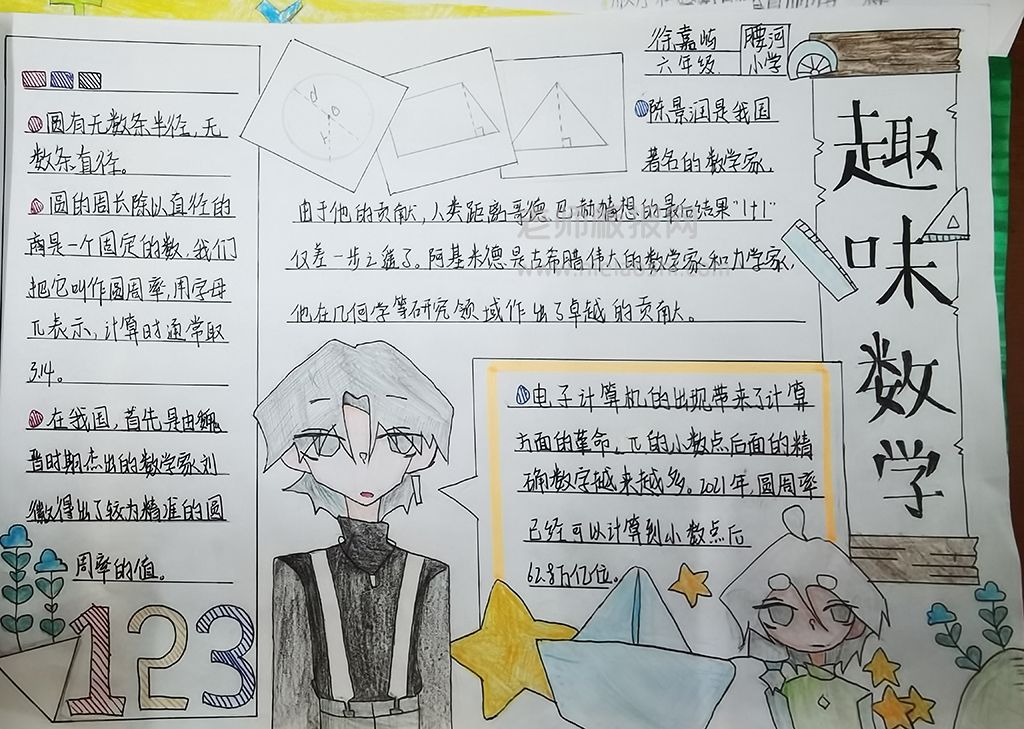 徐嘉屿
六年级
腰河
小学
趣味数学
圆有无数条半径,无
数条直径。
圆的周长除以直径的
商是一个固定的数,我们
把它叫作圆周率,用字母
π表示,计算时通常取
3.14。
在我国,首先是由魏
晋时期杰出的数学家刘
徽得出了较为精准的圆
周率的值。
123
d
o
r
陈景润是我国
著名的数学家,
由于他的贡献,人类距离哥德巴赫猜想的最后结果"1+1"
仅差一步之遥了。阿基米德是古希腊伟大的数学家和力学家,
他在几何学等研究领域作出了卓越的贡献。
老师板报网
电子计算机的出现带来了计算
方面的革命,π的小数点后面的精
确数字越来越多。2021年,圆周率
已经可以计算到小数点后
62.8万亿位。